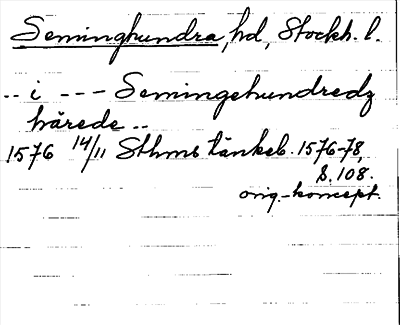 Seminghundra, hd, Stockh. l.
.. i --- Semingehundredz
härede ..
1576 14/11 Sthms tänkeb. 1576-78,
S. 108.
orig.-koncept.